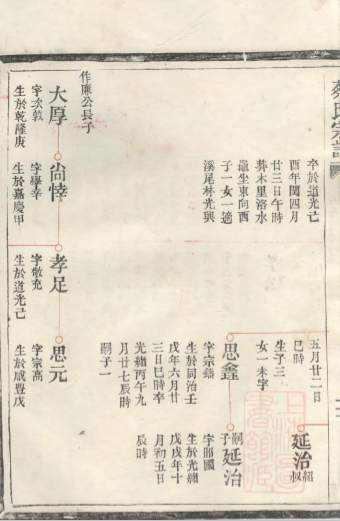 蔡氏宗譜
五月廿二日
巳時
生子三
女一未字
延治紹叔
卒於道光己
酉年閏四月
廿三日午時
葬木里洛水
龜坐東向西
子一女一適
溪尾林光興
思鑫
字宗鑄
生於同治壬
戌年六月廿
三日巳時卒
光緒丙午九
月廿七辰時
嗣子一
嗣子延治
字昭國
生於光緒
戊戌年十
月初五日
辰時
作廉公長子
大厚
字次敦
生於乾隆庚
尚悻
字學幸
生於嘉慶甲
孝足
字敬充
生於道光己
思元
字宗高
生於咸豐戊
上海圖書館藏